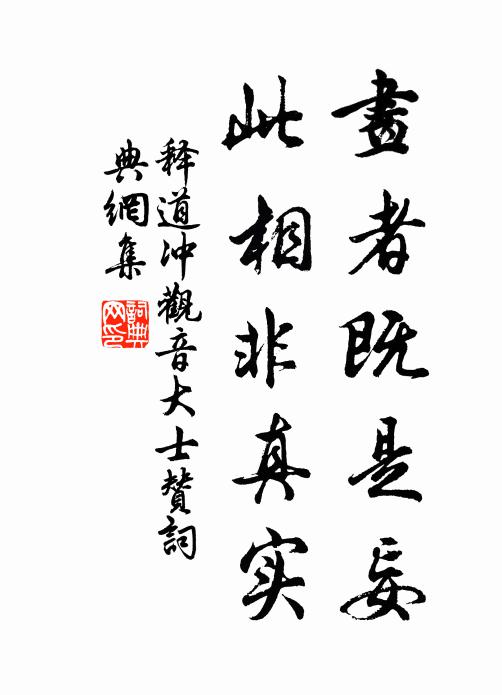 畫者既是妄
此相非真实
释道冲觀音大士赞詞
典網集
詞典网印